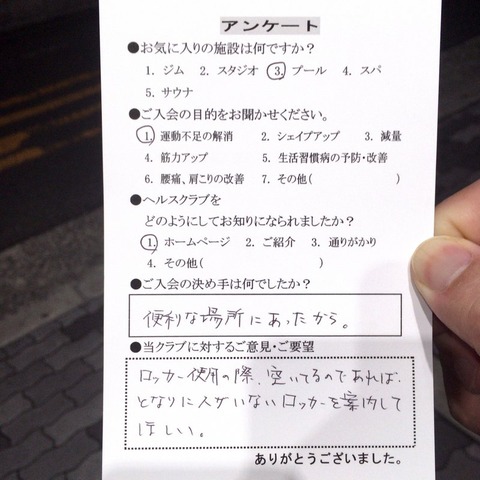 アンケート
●お気に入りの施設は何ですか？
1. ジム 2. スタジオ 3. プール 4. スパ
5. サウナ
●ご入会の目的をお聞かせください。
1. 運動不足の解消 2. シェイプアップ 3. 減量
4. 筋力アップ 5. 生活習慣病の予防・改善
6. 腰痛、肩こりの改善 7. その他( )
●ヘルスクラブを
どのようにしてお知りになられましたか？
1. ホームページ 2. ご紹介 3. 通りがかり
4. その他( )
●ご入会の決め手は何でしたか？
便利な場所にあったから。
●当クラブに対するご意見・ご要望
ロッカー使用の際、空いてるのであれば、
となりに人がいないロッカーを案内して
ほしい。
ありがとうございました。